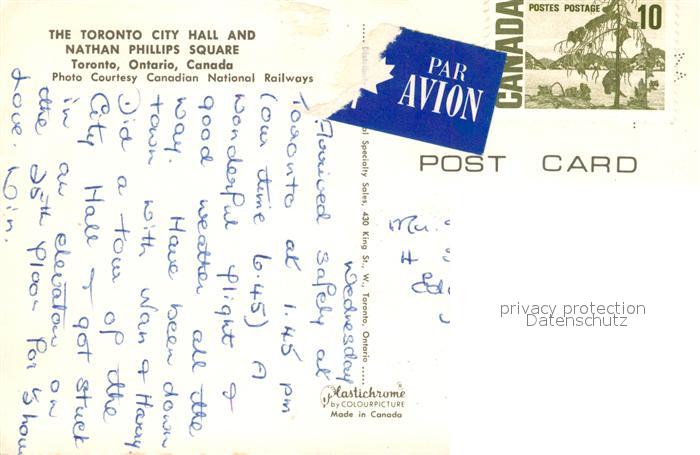 THE TORONTO CITY HALL AND
NATHAN PHILLIPS SQUARE
Toronto, Ontario, Canada
Photo Courtesy Canadian National Railways
Wednesday
Arrived safely at
Toronto at 1.45 pm
(our time 6.45) A
wonderful flight &
good weather all the
way. Have been down
town with Nan & Harry
Did a tour of the
City Hall & got stuck
in an elevator on
the 25th floor for ½ hour
Love. Win.
PAR
AVION
CANADA
POSTES POSTAGE
10
POST CARD
al Specialty Sales, 430 King St., W., Toronto, Ontario
Plastichrome
by COLOURPICTURE
Made in Canada
privacy protection
Datenschutz